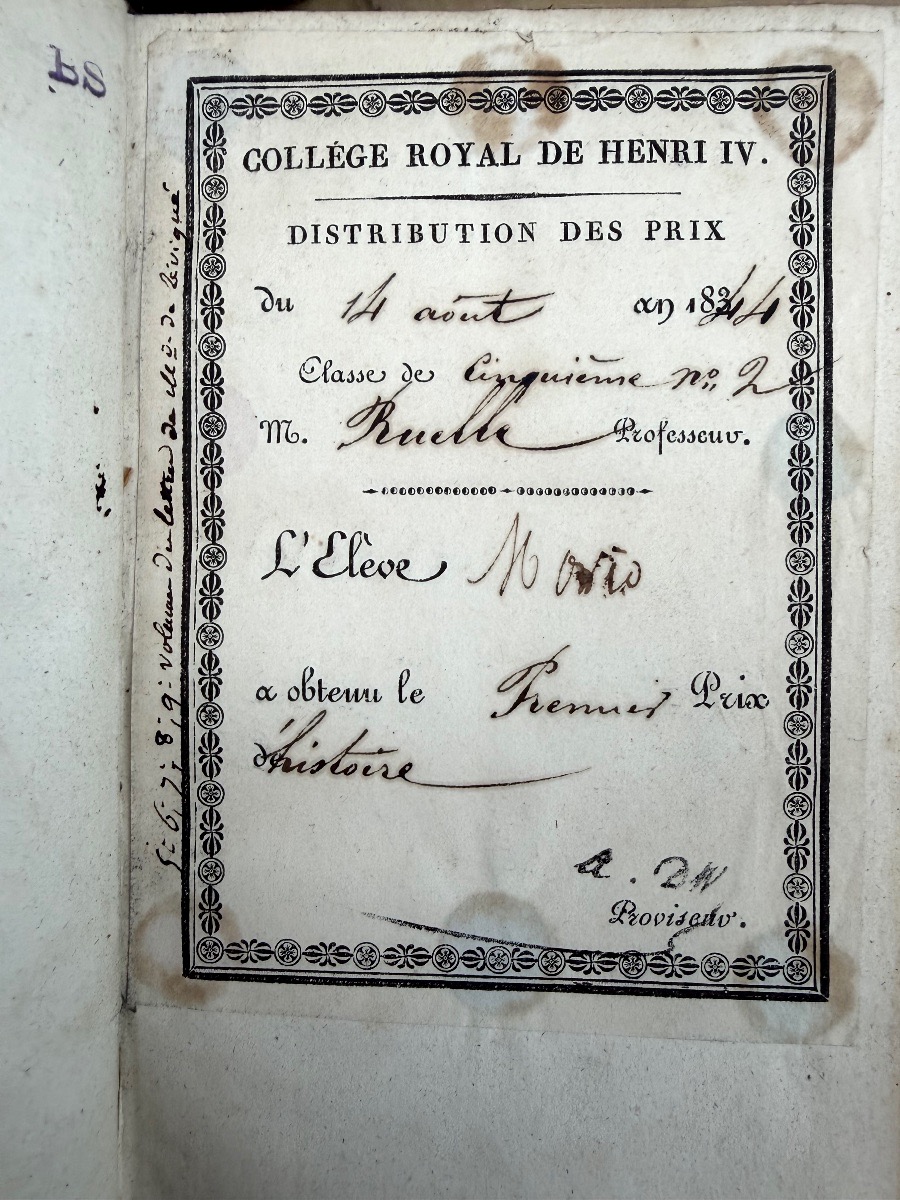 COLLÉGE ROYAL DE HENRI IV.
DISTRIBUTION DES PRIX
du 14 août an 1844
Classe de Cinquième no. 2
M. Ruelle Professeur.
L'Elève
a obtenu le Premier Prix
d'histoire
Proviseur.
5e 6, 7, 8, 9e volume des lettres de Md. de Sévigné